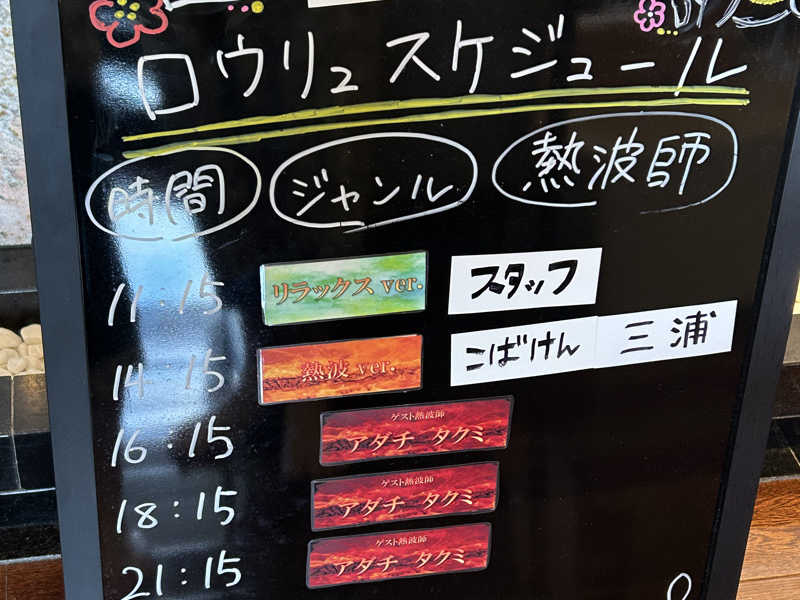 ロウリュスケジュール
時間 ジャンル 熱波師
11:15 リラックス ver. スタッフ
14:15 熱波 ver. こばけん 三浦
16:15 ゲスト熱波師 アダチ タクミ
18:15 ゲスト熱波師 アダチ タクミ
21:15 ゲスト熱波師 アダチ タクミ